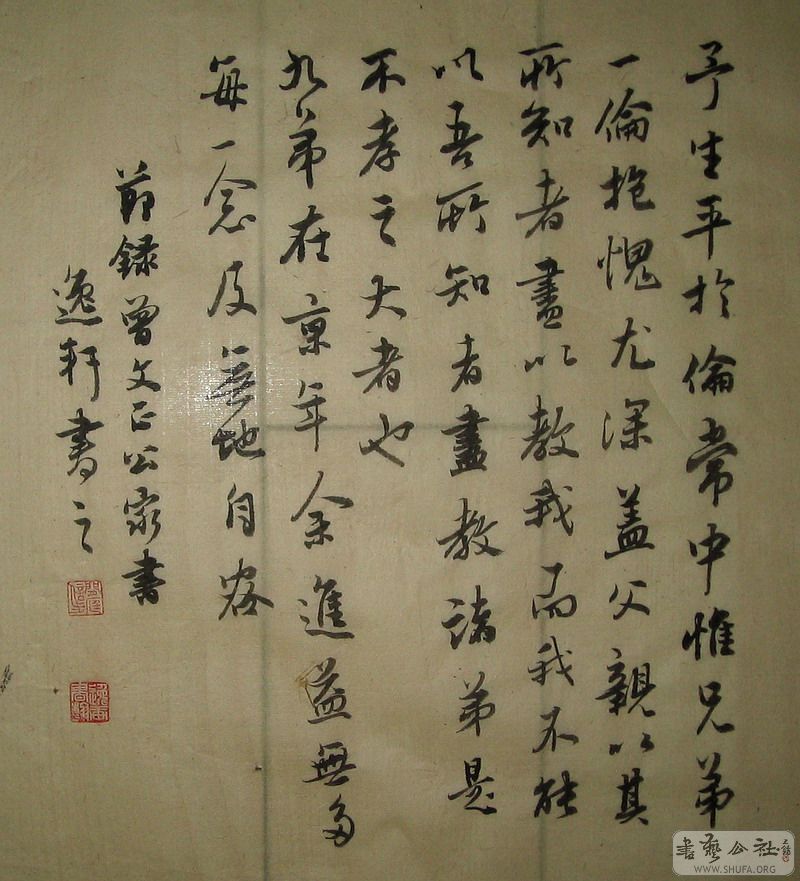 予生平於倫常中惟兄弟
一倫抱愧尤深蓋父親以其
所知者盡以教我而我不能
以吾所知者盡教諸弟是
不孝之大者也
九弟在京年余進益無多
每一念及無地自容
節錄曾文正公家書
逸軒書之
書藝公社
WWW.SHUFA.ORG